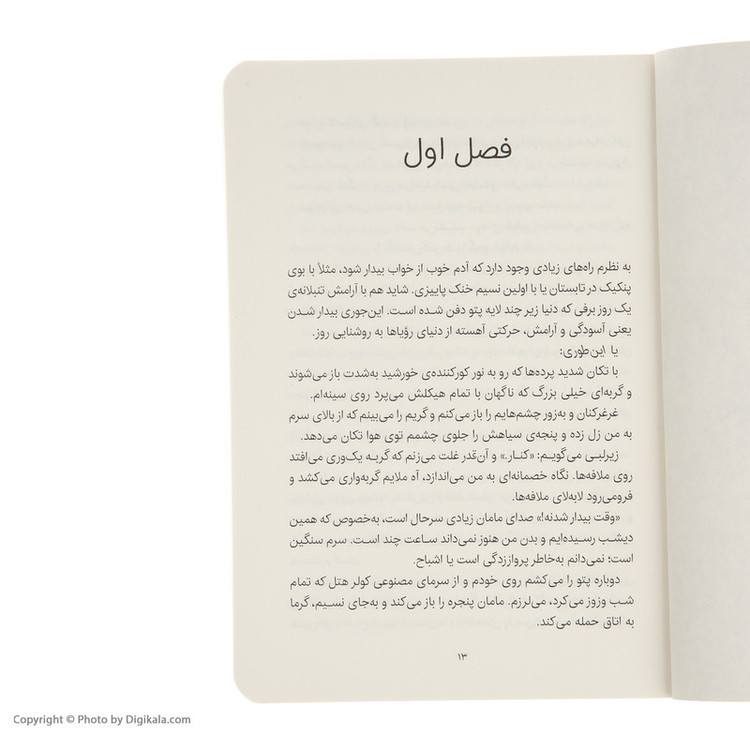 فصل اول
به نظرم راه‌های زیادی وجود دارد که آدم خوب از خواب بیدار شود، مثلاً با بوی
پنکیک در تابستان یا با اولین نسیم خنک پاییزی. شاید هم با آرامش تنبلانه‌ی
یک روز برفی که دنیا زیر چند لایه پتو دفن شده است. این‌جوری بیدار شدن
یعنی آسودگی و آرامش، حرکتی آهسته از دنیای رؤیاها به روشنایی روز.
یا این‌طوری:
با تکان شدید پرده‌ها که رو به نور کورکننده‌ی خورشید به‌شدت باز می‌شوند
و گربه‌ای خیلی بزرگ که ناگهان با تمام هیکلش می‌پرد روی سینه‌ام.
غرغرکنان و به‌زور چشم‌هایم را باز می‌کنم و گریم را می‌بینم که از بالای سرم
به من زل زده و پنجه‌ی سیاهش را جلوی چشمم توی هوا تکان می‌دهد.
زیرلبی می‌گویم: «کنار.» و آن‌قدر غلت می‌زنم که گربه یک‌وری می‌افتد
روی ملافه‌ها. نگاه خصمانه‌ای به من می‌اندازد، آه ملایم گربه‌واری می‌کشد و
فرومی‌رود لابه‌لای ملافه‌ها.
«وقت بیدار شدنه!» صدای مامان زیادی سرحال است، به‌خصوص که همین
دیشب رسیده‌ایم و بدن من هنوز نمی‌داند ساعت چند است. سرم سنگین
است؛ نمی‌دانم به‌خاطر پرواززدگی است یا اشباح.
دوباره پتو را می‌کشم روی خودم و از سرمای مصنوعی کولر هتل که تمام
شب وزوز می‌کرد، می‌لرزم. مامان پنجره را باز می‌کند و به‌جای نسیم، گرما
به اتاق حمله می‌کند.
۱۳
Copyright © Photo by Digikala.com